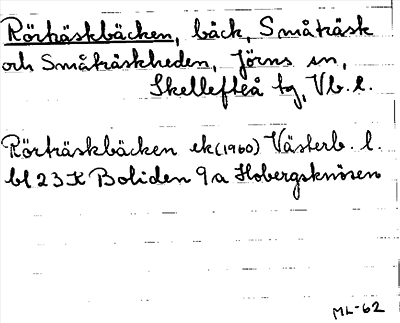 Rörträskbäcken, bäck, Småträsk
och Småträskheden, Jörns sn,
Skellefteå tg, Vb. l.
Rörträskbäcken ek (1960) Västerb. l.
bl 23 K Boliden 9a Hobergsknösen
ML-62